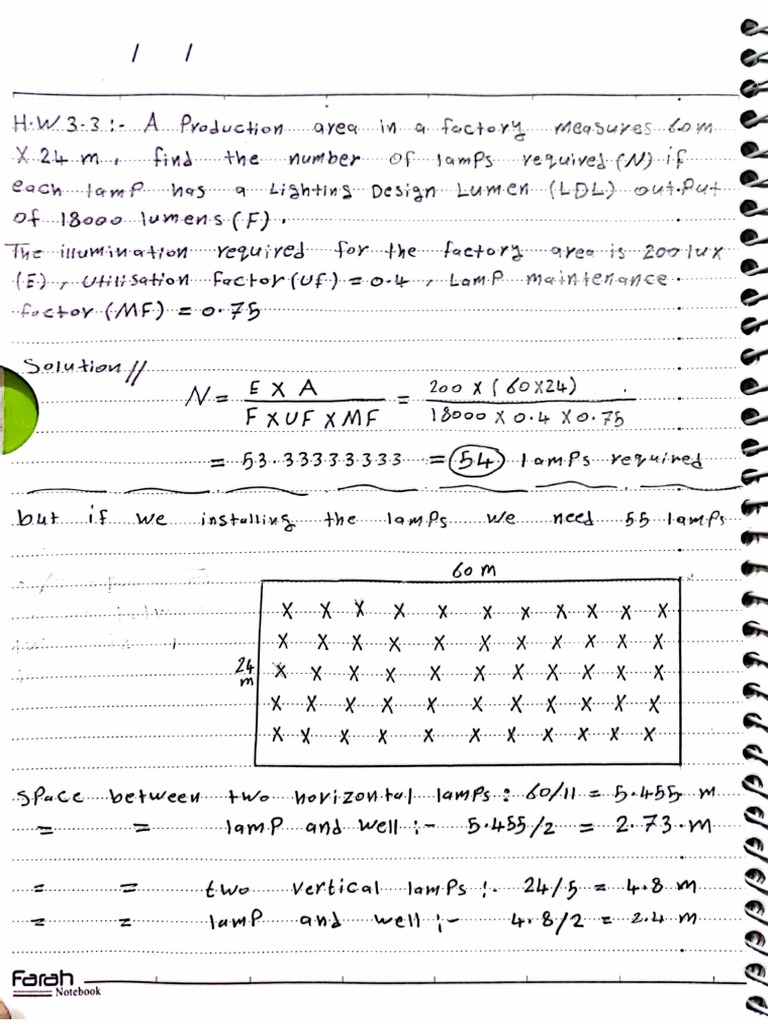 / /
H.W.3.3:- A Production area in a factory measures 60m
X 24 m, find the number of lamps required (N) if
each lamp has a Lighting Design Lumen (LDL) output
of 18000 lumens (F).
The illumination required for the factory area is 200 lux
(E), utilisation factor (Uf) = 0.4, Lamp maintenance
factor (MF) = 0.75
Solution //
N = E X A / F X UF X MF = 200 X (60X24) / 18000 X 0.4 X 0.75
= 53.33333333 = 54 lamps required
but if we installing the lamps we need 55 lamps
60 m
X X X X X X X X X X X
X X X X X X X X X X X
24 m X X X X X X X X X X X
X X X X X X X X X X X
X X X X X X X X X X X
Space between two horizontal lamps: 60/11 = 5.455 m
= = lamp and well :- 5.455/2 = 2.73 m
= = two vertical lamps :- 24/5 = 4.8 m
= = lamp and well :- 4.8/2 = 2.4 m
Farah
Notebook